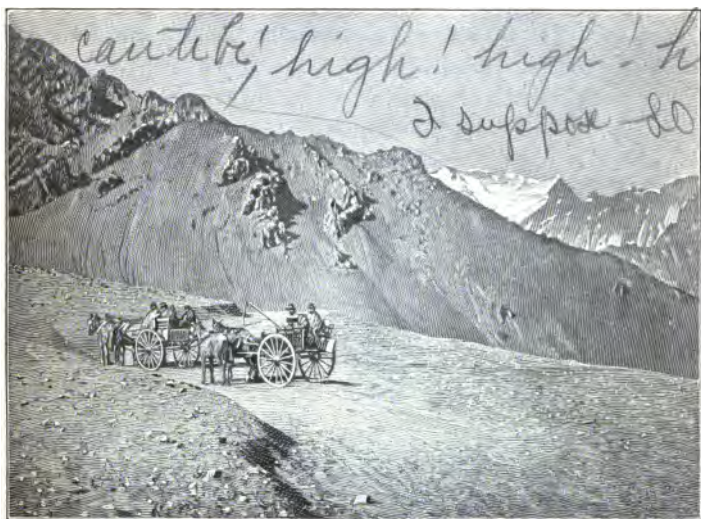 cautibi, high! high! h
I suppose so